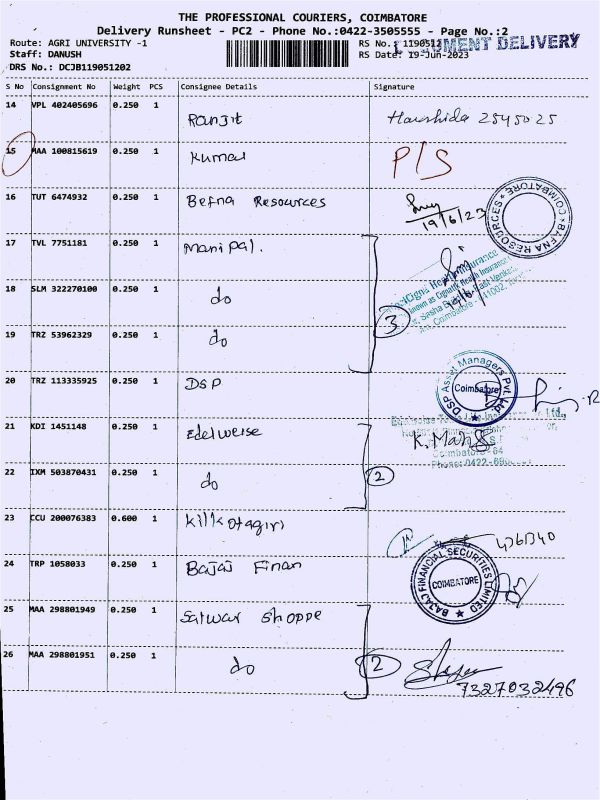 THE PROFESSIONAL COURIERS, COIMBATORE
Delivery Runsheet - PC2 - Phone No.:0422-3505555 - Page No.:2
Route: AGRI UNIVERSITY -1
Staff: DANUSH
DRS No.: DCJB119051202
RS No.: 1190512
DOCUMENT DELIVERY
RS Date: 19-Jun-2023
S No Consignment No Weight PCS Consignee Details Signature
14 VPL 402405696 0.250 1 Ranjit Harshida 2545025
15 MAA 100815619 0.250 1 Kumar P/S
16 TUT 6474932 0.250 1 Befna Resources 19/6/23
BAFNA RESOURCES * COIMBATORE *
17 TVL 7751181 0.250 1 Manipal.
18 SLM 322270100 0.250 1 do
19 TRZ 53962329 0.250 1 do
3
20 TRZ 113335925 0.250 1 DSP
DSP Asset Managers Pvt. Ltd. Coimbatore
21 KDI 1451148 0.250 1 Edelweise
22 IXM 503870431 0.250 1 do
2
23 CCU 200076383 0.600 1 Killkotagiri
24 TRP 1058033 0.250 1 Bajaj Finan
BAJAJ FINANCIAL SECURITIES LIMITED COIMBATORE
25 MAA 298801949 0.250 1 Salwar Shoppe
26 MAA 298801951 0.250 1 do
2
7327032496